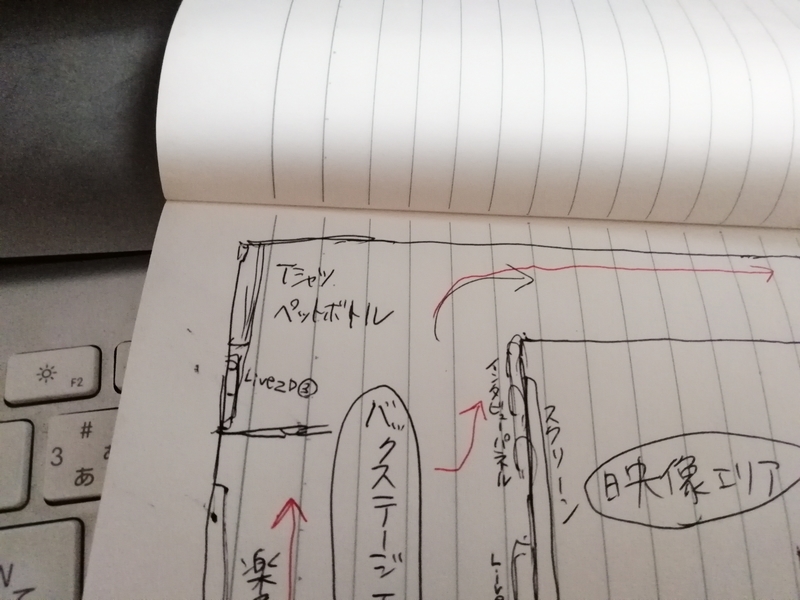 Tシャツ
ペットボトル
Live2D③
バックステージエ
インタビューパネル
スクリーン
映像エリア
楽
Live
F2
#
3
あ